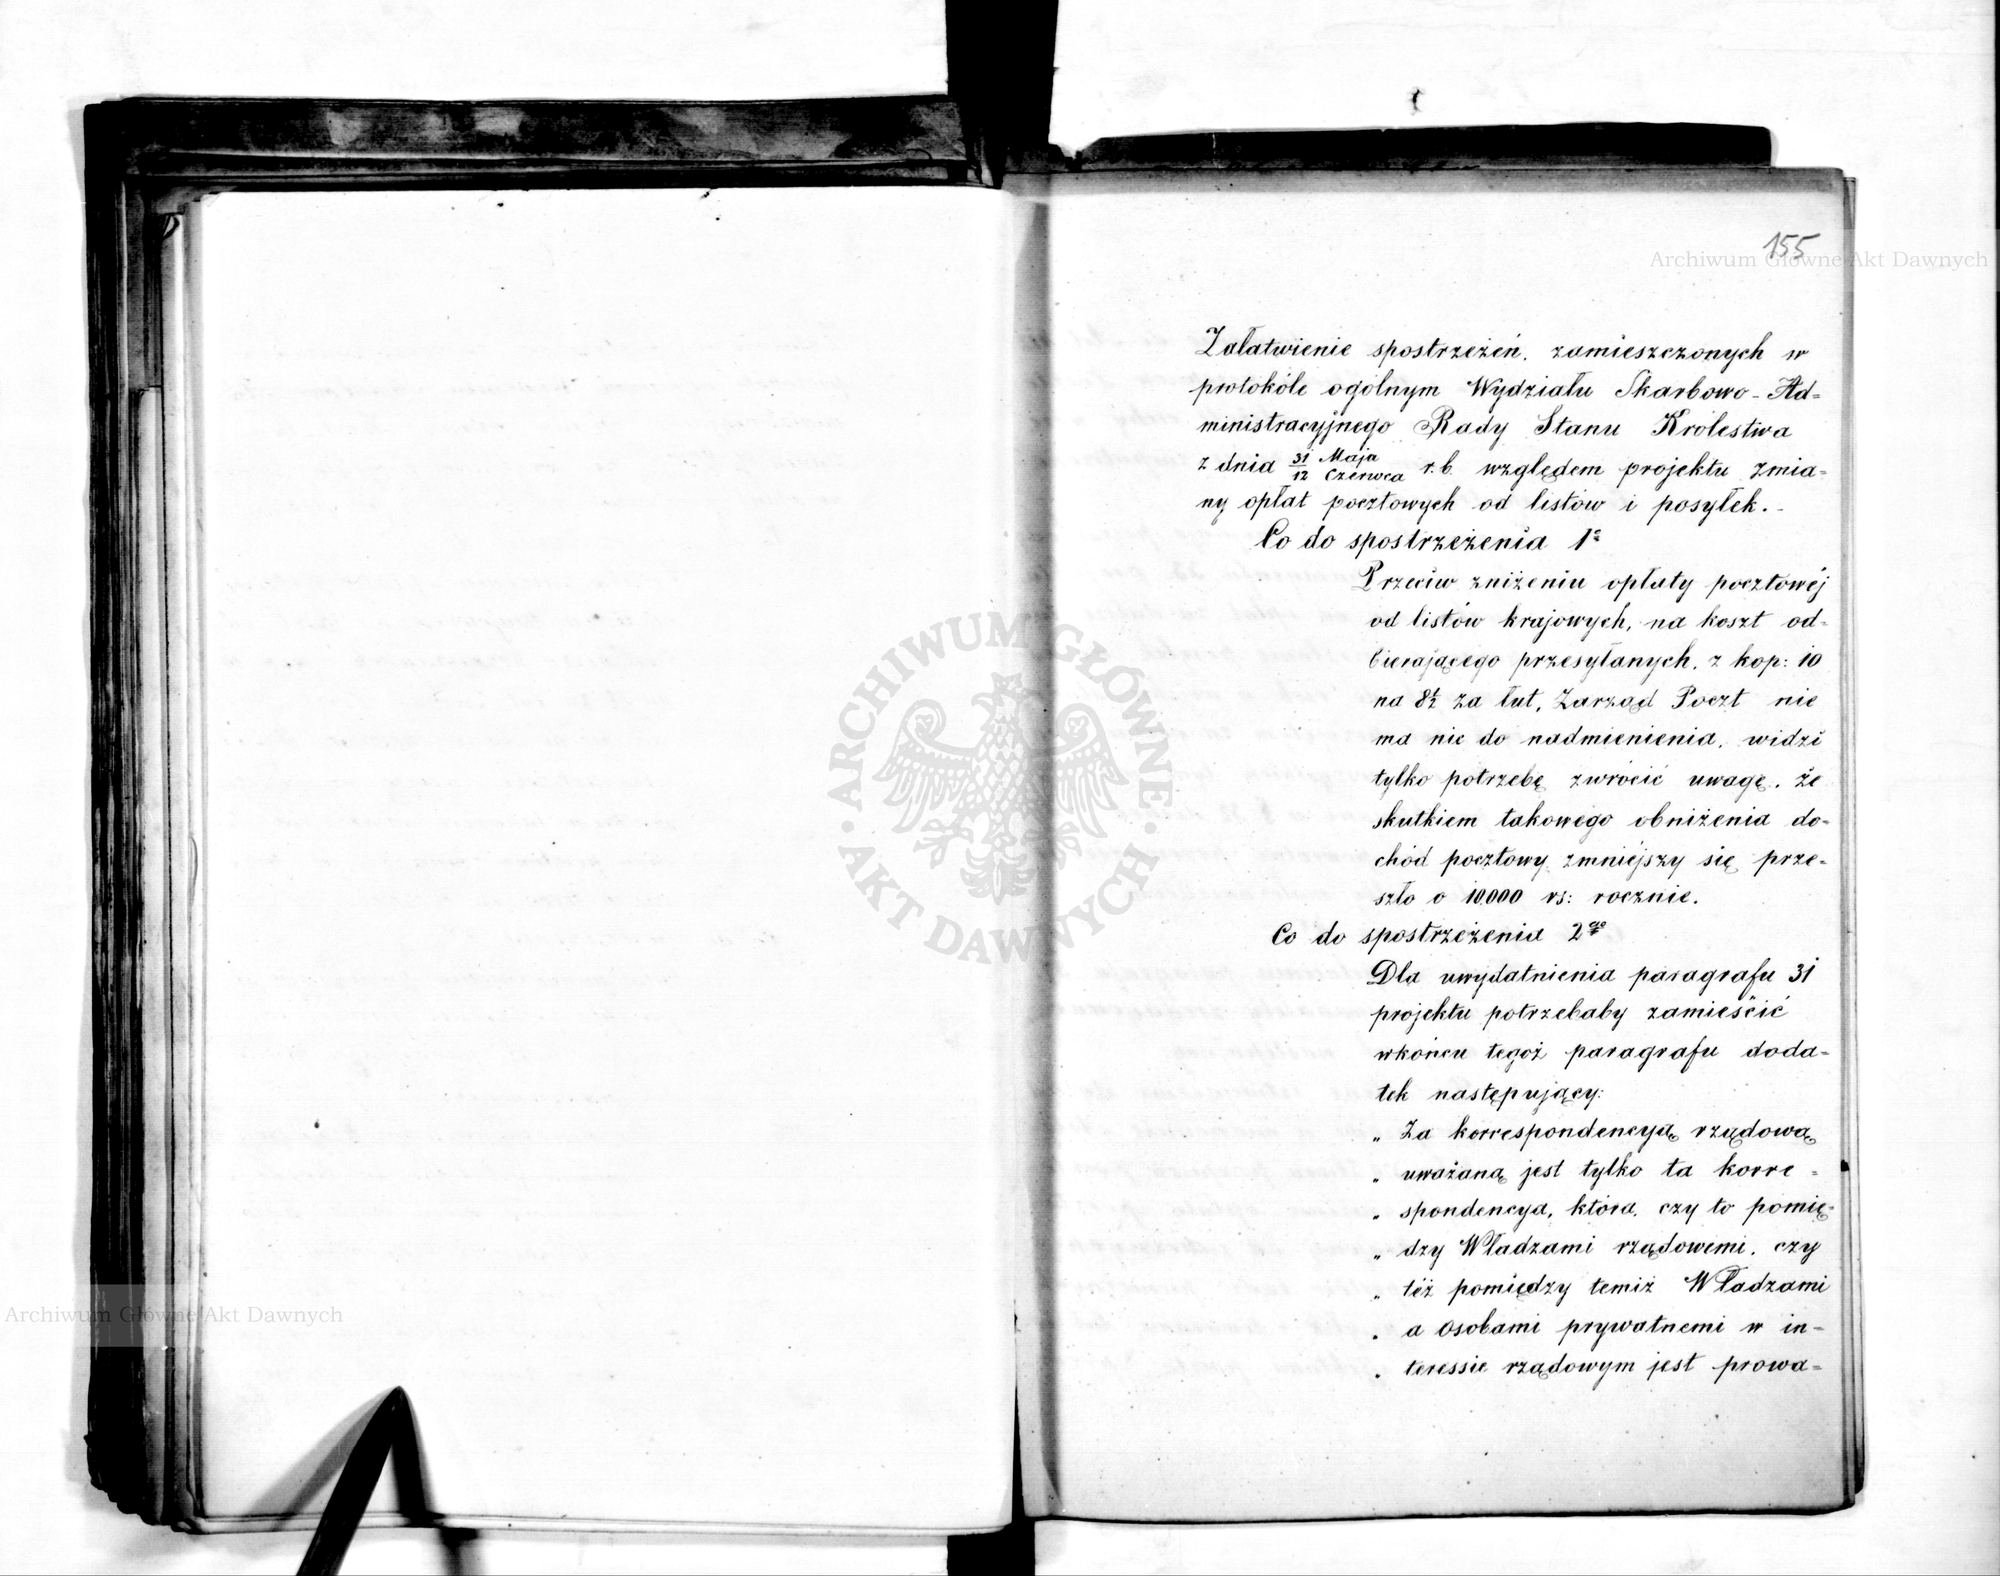 155
Załatwienie spostrzeżeń, zamieszczonych w
protokóle ogólnym Wydziału Skarbowo-Ad=
ministracyjnego Rady Stanu Królestwa
z dnia 31 Maja / 12 Czerwca r.b. względem projektu zmia=
ny opłat pocztowych od listów i posyłek.-
Co do spostrzeżenia 1o
Przeciw zniżeniu opłaty pocztowéj
od listów krajowych, na koszt od=
bierającego przesyłanych, z kop: 10
na 8½ za łut, Zarząd Poczt nie
ma nic do nadmienienia, widzi
tylko potrzebę zwrócić uwagę, że
skutkiem takowego obniżenia do=
chód pocztowy zmniéjszy się prze=
szło o 10,000 rs: rocznie.
Co do spostrzeżenia 2go
Dla uwydatnienia paragrafu 31
projektu potrzebaby zamieścić
wkońcu tegoż paragrafu doda=
tek następujący:
„ Za korrespondencyą rządową
„ uważaną jest tylko ta korre=
„ spondencya, która, czy to pomię=
„ dzy Władzami rządowemi, czy
„ téż pomiędzy temiż Władzami
„ a osobami prywatnemi w in=
„ teressie rządowym jest prowa=
Archiwum Główne Akt Dawnych
ARCHIWUM GŁÓWNE
AKT DAWNYCH
Archiwum Główne Akt Dawnych